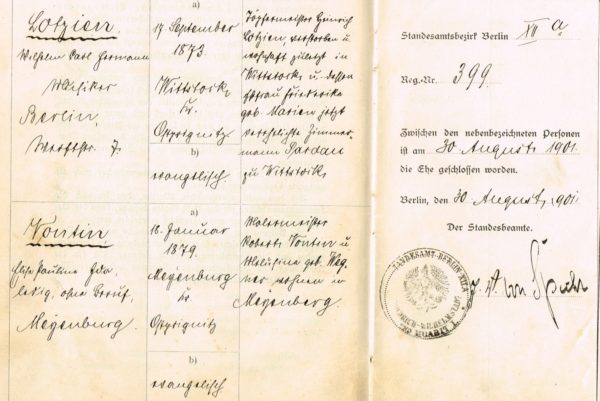 Lotzien
Wilhelm Carl Hermann
Musiker
Berlin,
Werftstr. 7.
a)
17. September
1873.
Wittstock
Kr.
Ostprignitz
b)
evangelisch.
Töpfermeister Heinrich
Lotzien, verstorben u.
wohnhaft zuletzt in
Wittstock u. dessen
Ehefrau Friederike
geb. Marien jetzt
verehelichte Zimmer-
mann Pardau
zu Wittstock.
Vontin
Else Pauline Ida,
ledig, ohne Beruf,
Meyenburg.
a)
18. Januar
1879.
Meyenburg
Kr.
Ostprignitz
b)
evangelisch
Malermeister
Robert Vontin u.
geb. Weg-
ner, wohnen in
Meyenburg.
Standesamtsbezirk Berlin XII a
Reg.-Nr. 399.
Zwischen den nebenbezeichneten Personen
ist am 30 August 1901
die Ehe geschlossen worden.
Berlin, den 30 August, 1901
Der Standesbeamte.
STANDESAMT BERLIN XII A
MOABIT